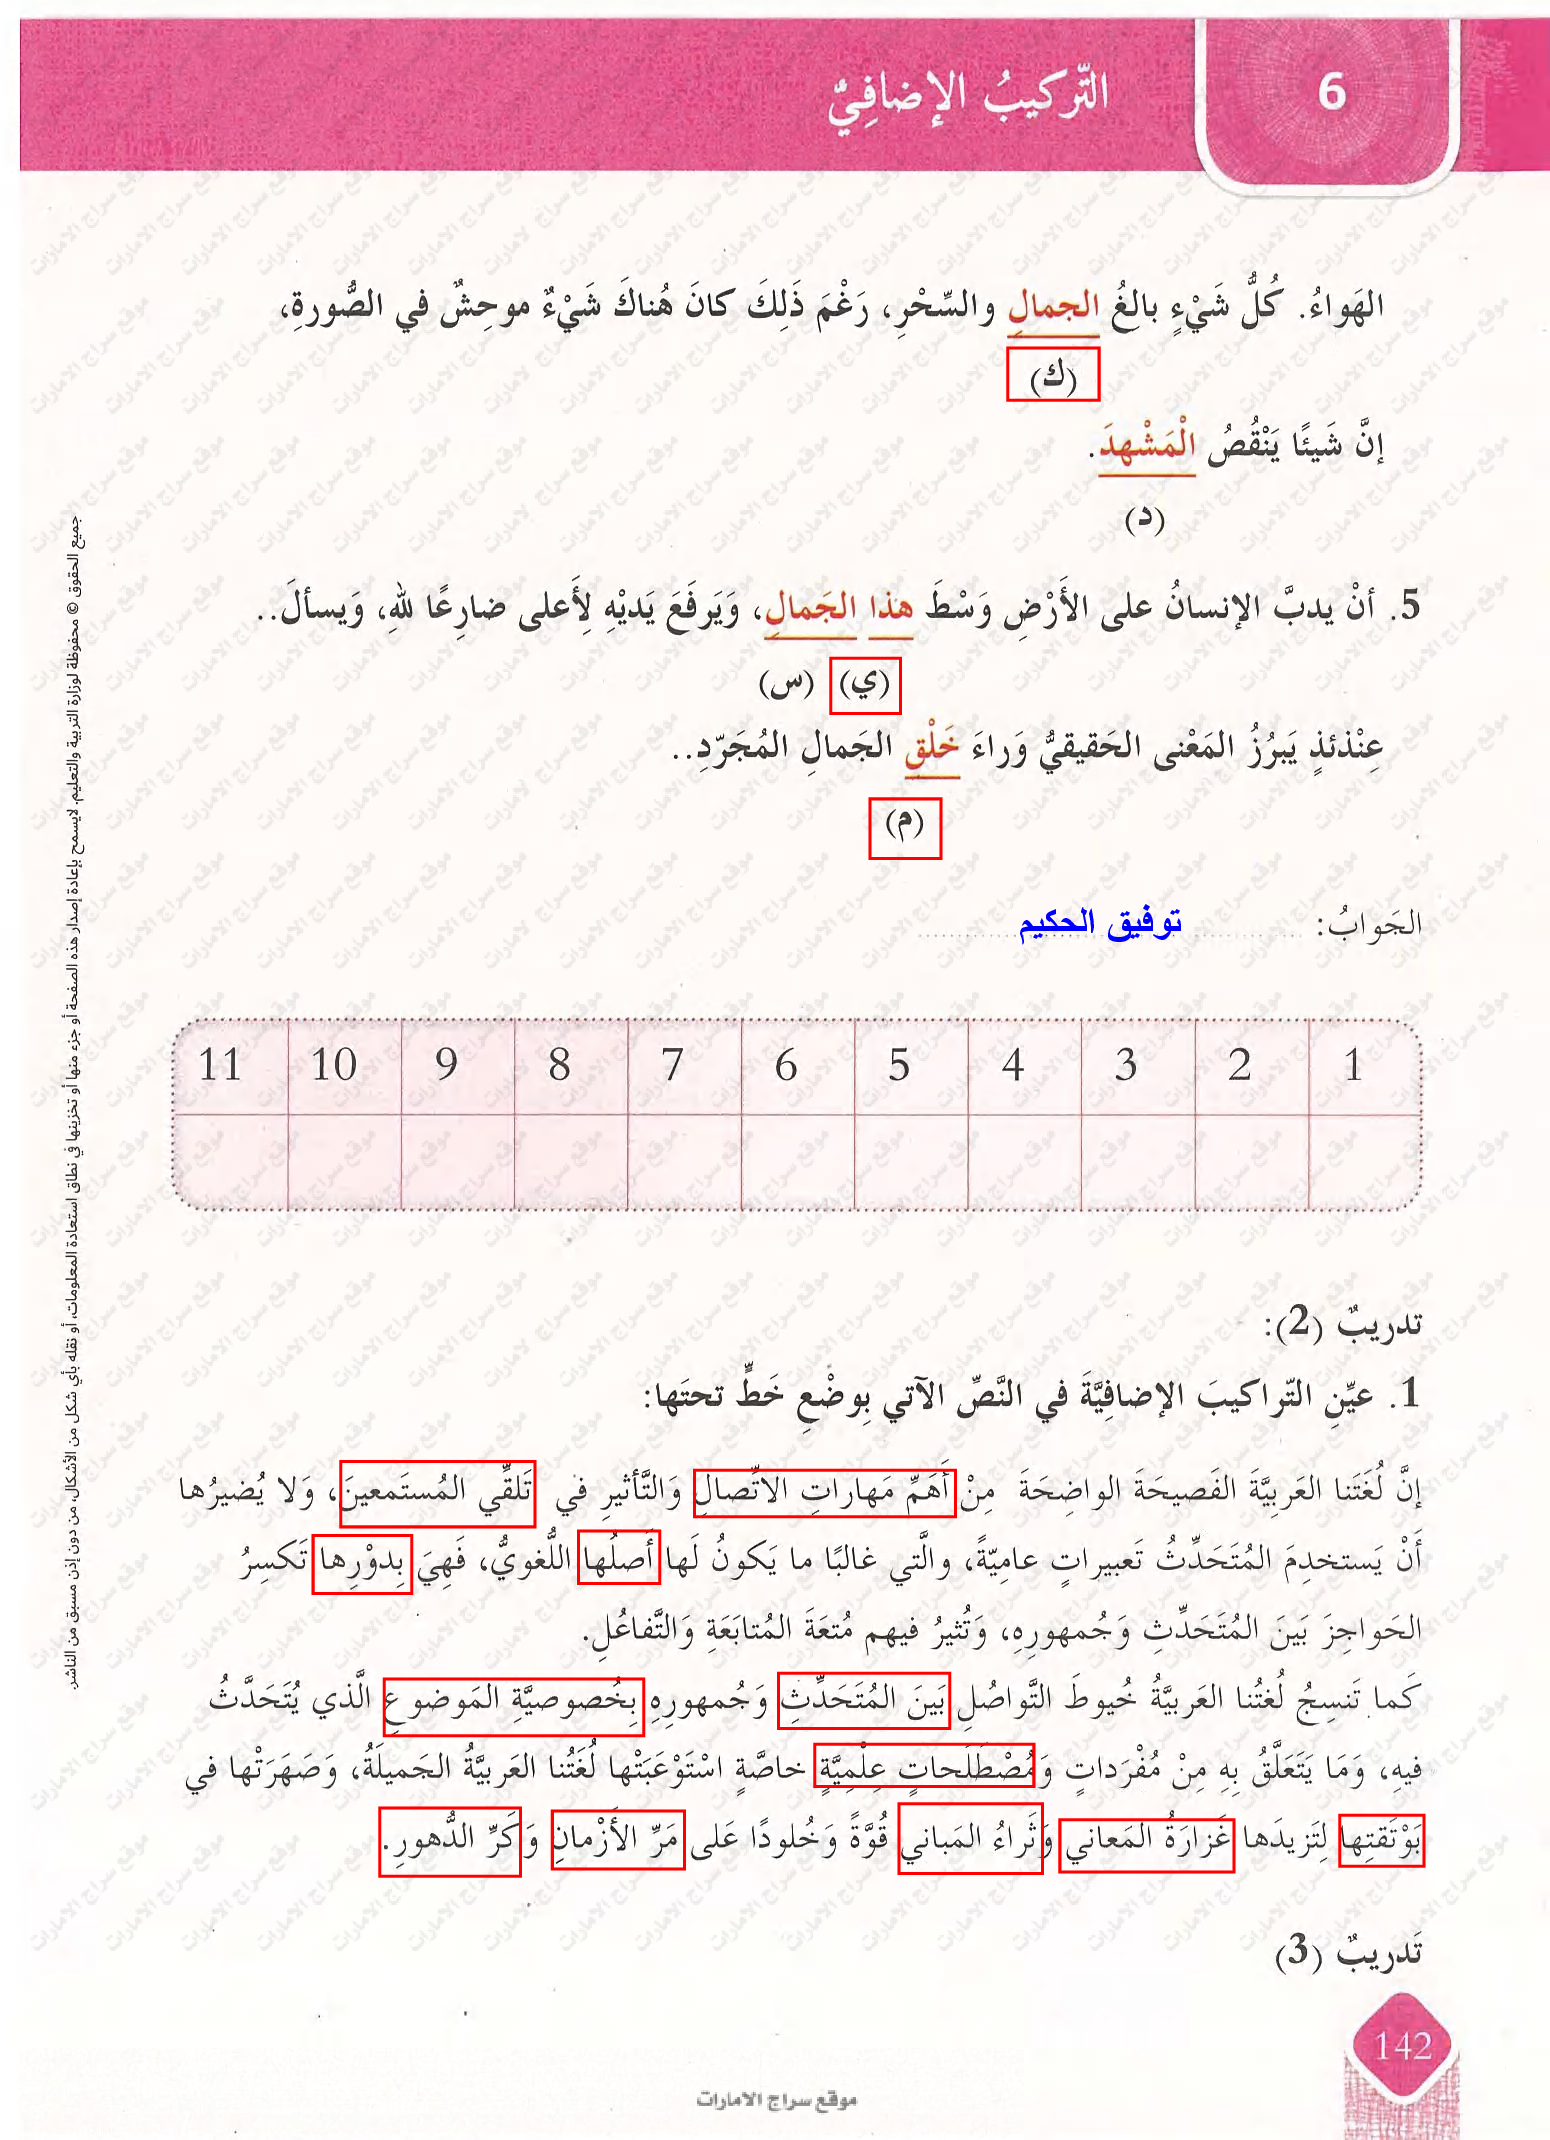 6
التّركيبُ الإضافِيُّ
الهَواءُ. كُلُّ شَيْءٍ بالِغُ الجمالِ والسِّحْرِ، رَغْمَ ذَلِكَ كانَ هُناكَ شَيْءٌ موحِشٌ في الصُّورةِ،
(ك)
إنَّ شَيئًا يَنْقُصُ الْمَشْهدَ.
(د)
5. أنْ يدبَّ الإنسانُ على الأَرْضِ وَسْطَ هذا الجَمالِ، وَيَرفَعَ يَديْهِ لِأَعلى ضارِعًا للهِ، وَيسألَ..
(ي) (س)
عِنْذئذٍ يَبرُزُ المَعْنى الحَقيقيُّ وَراءَ خَلْقِ الجَمالِ المُجَرّدِ..
(م)
الجَوابُ: توفيق الحكيم
1 2 3 4 5 6 7 8 9 10 11
تدريبٌ (2):
1. عيِّنِ التّراكيبَ الإضافِيَّةَ في النَّصِّ الآتي بِوضْعِ خَطٍّ تحتَها:
إنَّ لُغَتَنا العَربِيَّةَ الفَصيحَةَ الواضِحَةَ مِنْ أَهَمِّ مَهاراتِ الاتِّصالِ وَالتَّأثيرِ في تَلقِّي المُستَمعينَ، وَلا يُضيرُها
أَنْ يَستخدِمَ المُتَحَدِّثُ تَعبيراتٍ عامِيّةً، والَّتي غالبًا ما يَكونُ لَها أَصلُها اللُّغويُّ، فَهِيَ بِدوْرِها تَكسِرُ
الحَواجِزَ بَينَ المُتَحَدِّثِ وَجُمهورِهِ، وَتُثيرُ فيهم مُتعَةَ المُتابَعَةِ وَالتَّفاعُلِ.
كَما تَنسِجُ لُغتُنا العَربيَّةُ خُيوطَ التَّواصُلِ بَينَ المُتَحَدِّثِ وَجُمهورِهِ بِخُصوصيَّةِ المَوضوعِ الَّذي يُتَحَدَّثُ
فيهِ، وَمَا يَتَعَلَّقُ بِهِ مِنْ مُفْرَداتٍ وَمُصْطَلَحاتٍ عِلْمِيَّةٍ خاصَّةٍ اسْتَوْعَبَتْها لُغَتُنا العَربيَّةُ الجَميلَةُ، وَصَهَرَتْها في
بَوْتَقتِها لِتَزيدَها غَزارَةُ المَعاني وَثَراءُ المَباني قُوَّةً وَخُلودًا عَلى مَرِّ الأَزْمانِ وَكَرِّ الدُّهورِ.
تَدريبٌ (3)
142
موقع سراج الامارات
جميع الحقوق © محفوظة لوزارة التربية والتعليم. لايسمح بإعادة إصدار هذه الصفحة أو جزء منها أو تخزينها في نطاق استعادة المعلومات، أو نقله بأي شكل من الأشكال، من دون إذن مسبق من الناشر.